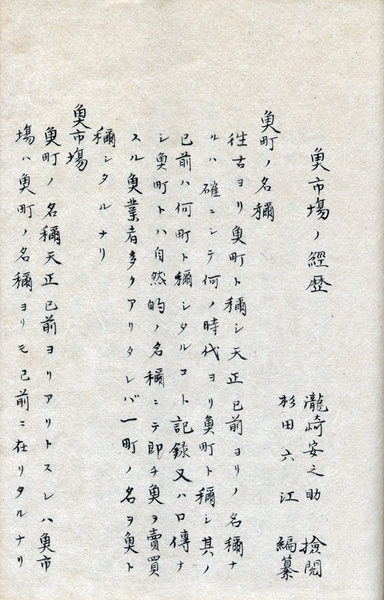 魚市場ノ經歴
瀧崎安之助 撿閲
杉田六江 編纂
魚町ノ名稱
徃古ヨリ魚町ト稱シ天正已前ヨリノ名稱ナ
ルハ確ニシテ何ノ時代ヨリ魚町ト稱シ其ノ
已前ハ何町ト稱シタルコト記錄又ハ口傳ナ
シ魚町トハ自然的ノ名稱ニテ即チ魚ヲ賣買
スル魚業者多クアリタレバ一町ノ名ヲ魚ト
稱シタルナリ
魚市塲
魚町ノ名稱天正已前ヨリアリトスレハ魚市
塲ハ魚町ノ名稱ヨリモ已前ニ在リタルナリ